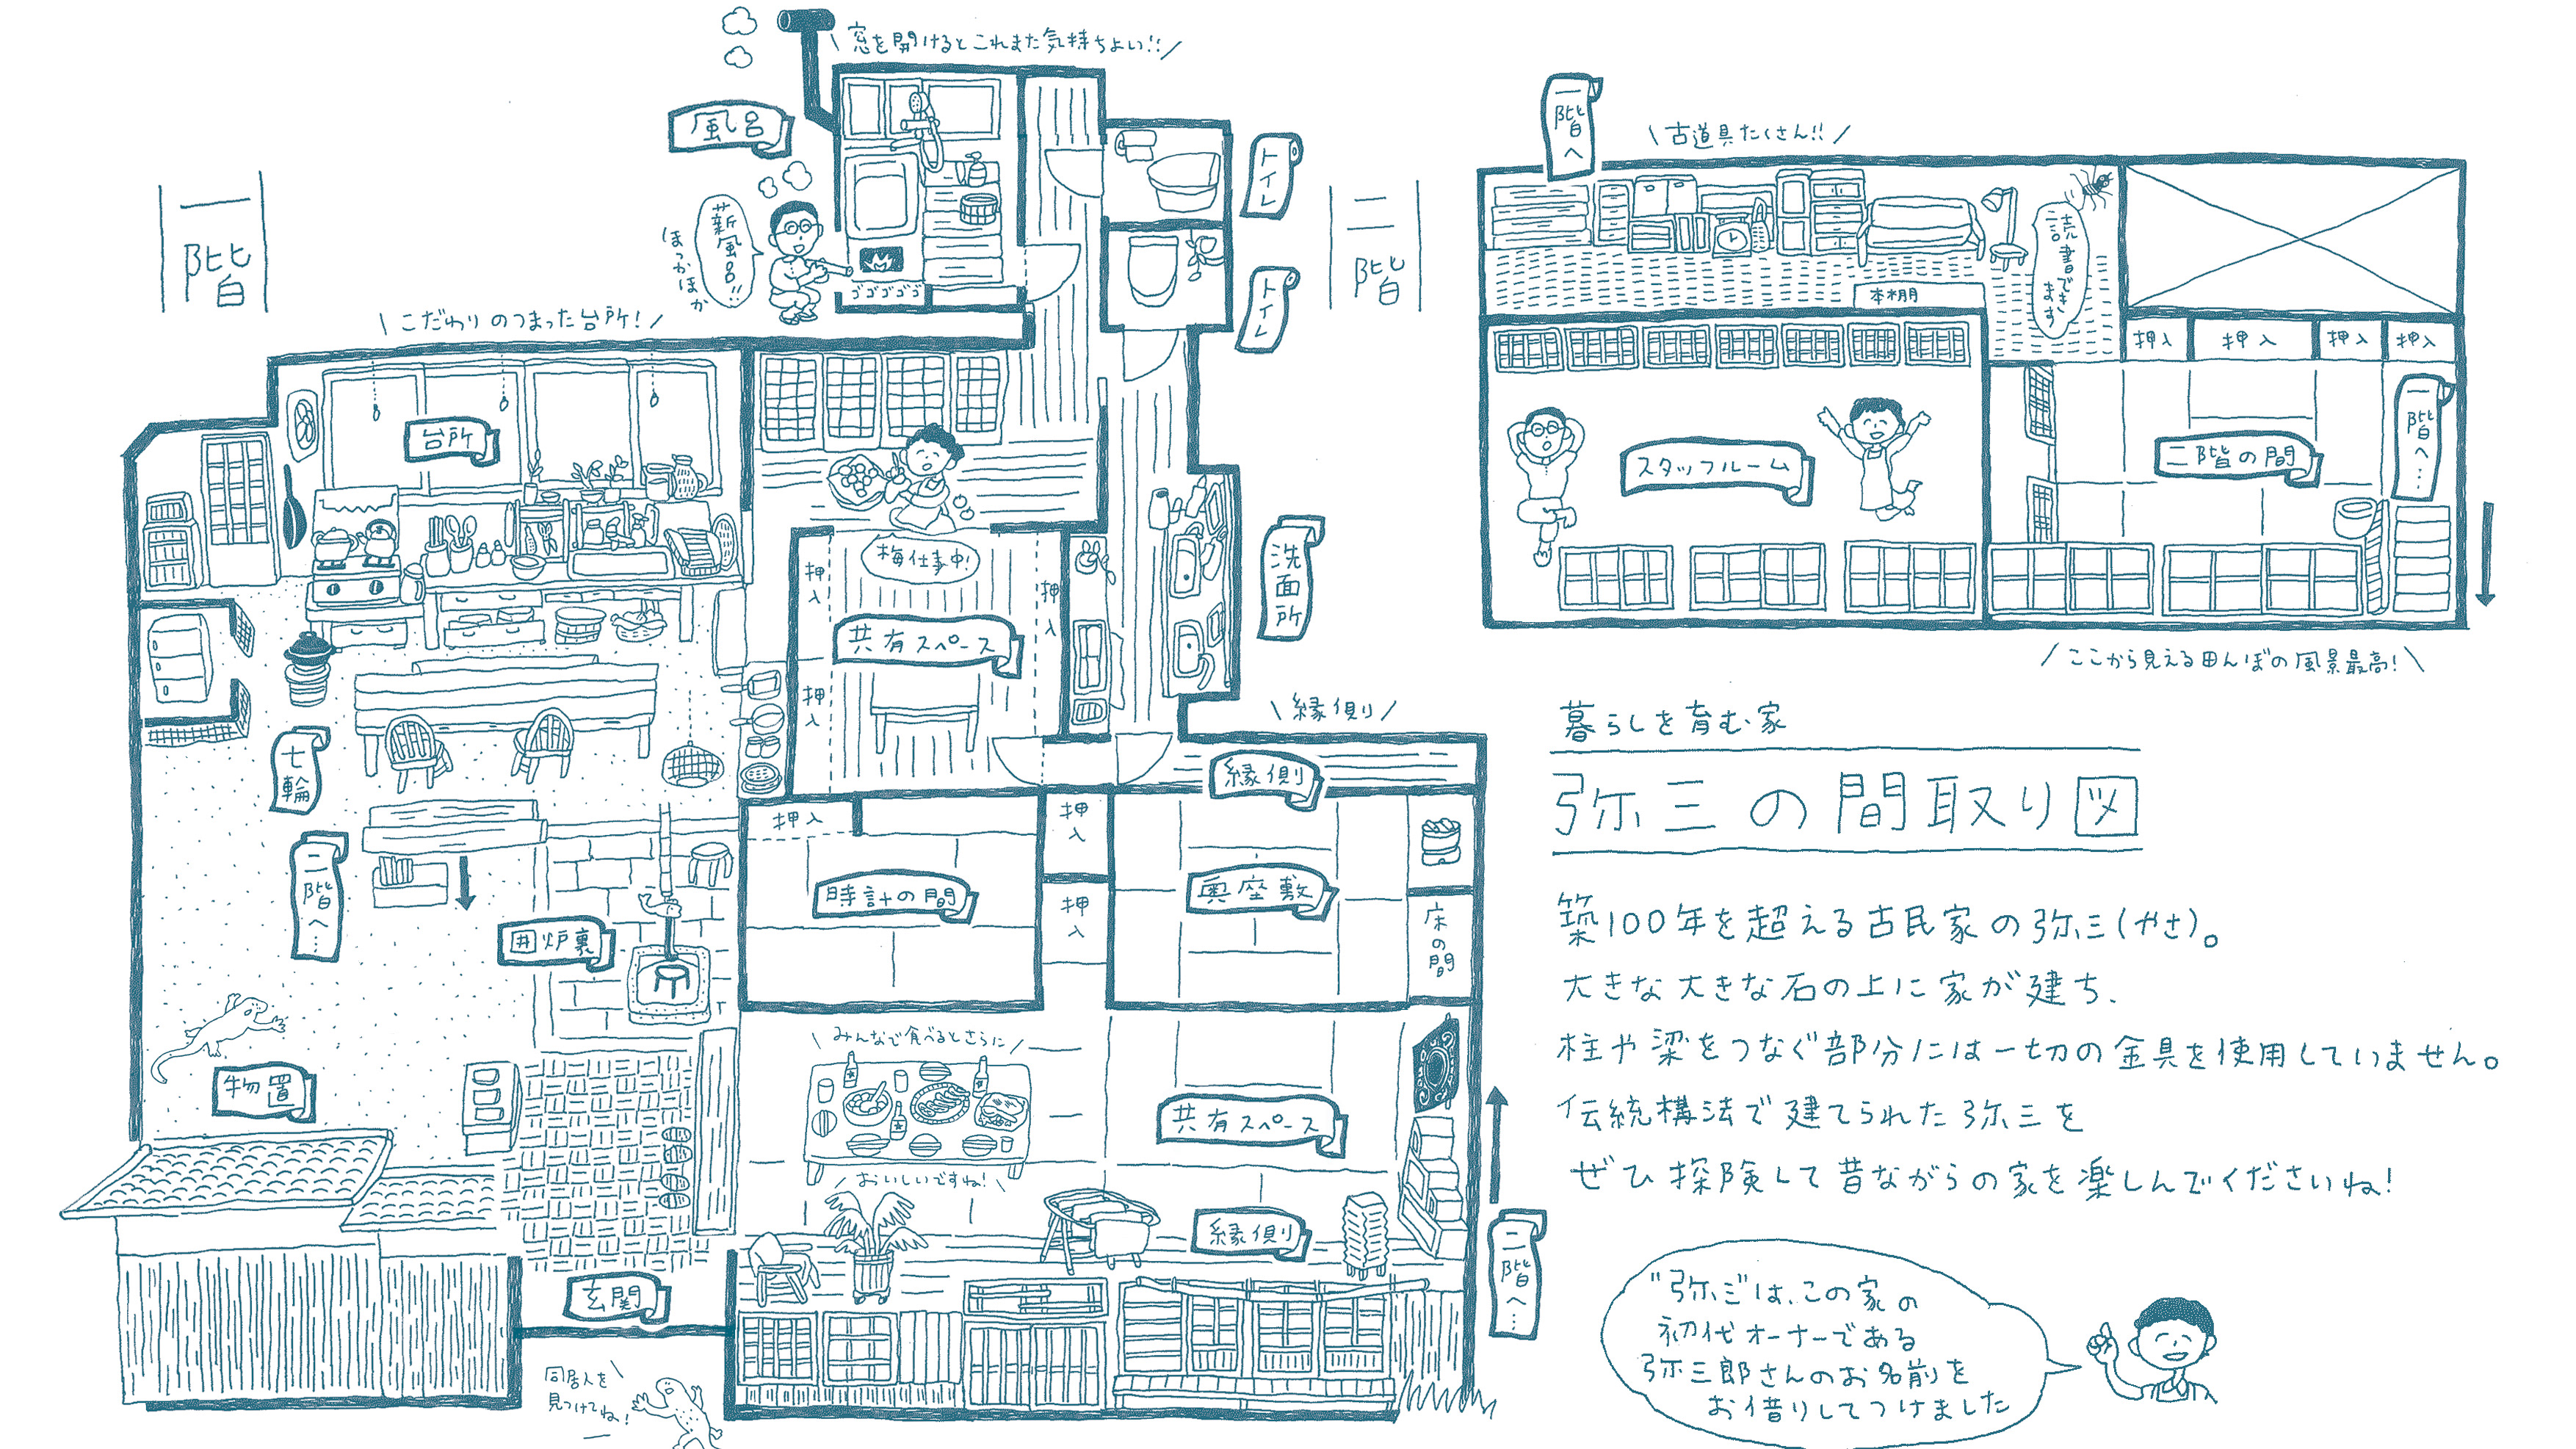 一階
窓を開けるとこれまた気持ちよい!!
風呂
薪風呂!!
ほっかほか
ゴゴゴゴゴ
トイレ
トイレ
こだわりのつまった台所!
台所
梅仕事中!
押入
押入
押入
共有スペース
洗面所
七輪
二階へ…
囲炉裏
物置
玄関
同居人を
見つけてね!
縁側
縁側
押入
時計の間
押入
押入
奥座敷
床の間
みんなで食べるとさらに
おいしいですね!
共有スペース
縁側
二階へ…
二階
一階へ
古道具たくさん!!
読書できます
本棚
押入
押入
押入
押入
スタッフルーム
二階の間
一階へ…
ここから見える田んぼの風景最高!
暮らしを育む家
弥三の間取り図
築100年を超える古民家の弥三(やさ)。
大きな大きな石の上に家が建ち、
柱や梁をつなぐ部分には一切の金具を使用していません。
伝統構法で建てられた弥三を
ぜひ探険して昔ながらの家を楽しんでくださいね!
"弥三"は、この家の
初代オーナーである
弥三郎さんのお名前を
お借りしてつけました